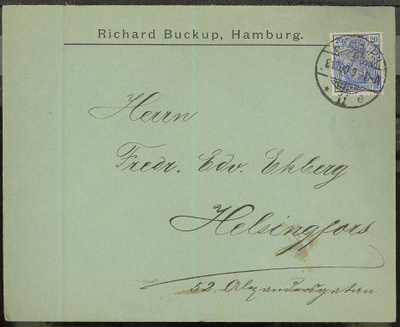 Richard Buckup, Hamburg.
20
Herrn
Fredr. Edv. Ekberg
Helsingfors
52. Alexandersgatan